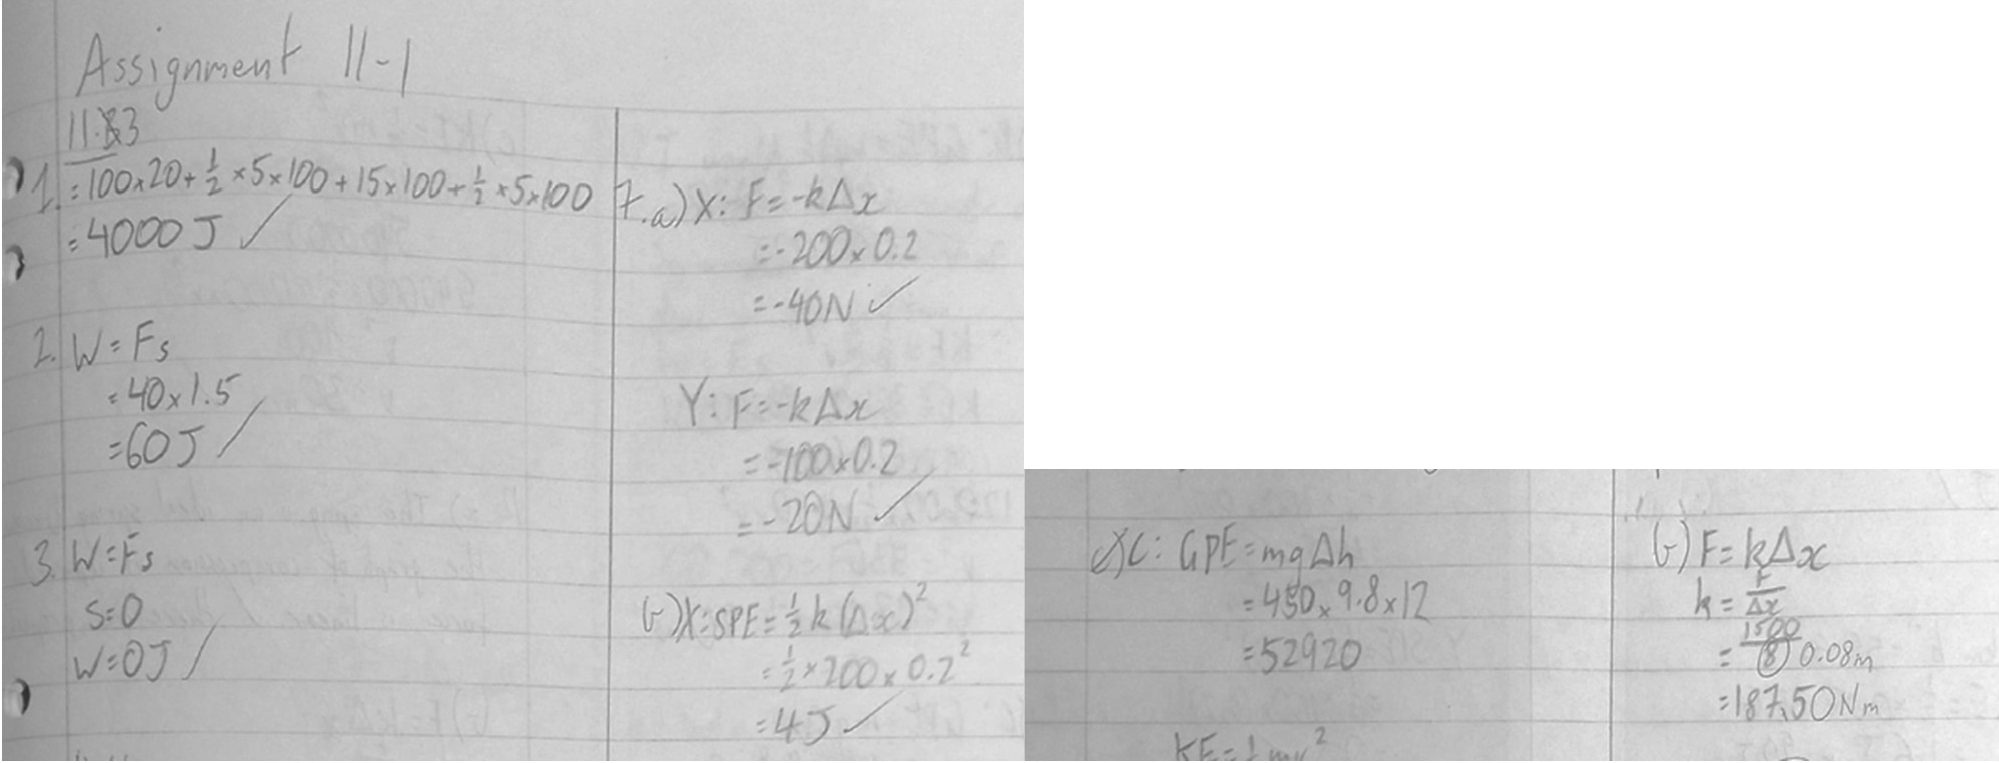 Assignment 11-1
11.3
1. = 100×20+½×5×100+15×100+½×5×100
= 4000J ✓
2. W=Fs
= 40×1.5
= 60J ✓
3. W=Fs
s=0
W=0J ✓
7.a) X: F=-kΔx
= -200×0.2
= -40N ✓
Y: F=-kΔx
= -100×0.2
= -20N ✓
b) X: SPE=½k(Δx)²
= ½×200×0.2²
= 4J ✓
C: GPE=mgΔh
= 450×9.8×12
= 52920
KE=½mv²
b) F=kΔx
k=F/Δx
= 1500/8 0.08m
= 187.50Nm